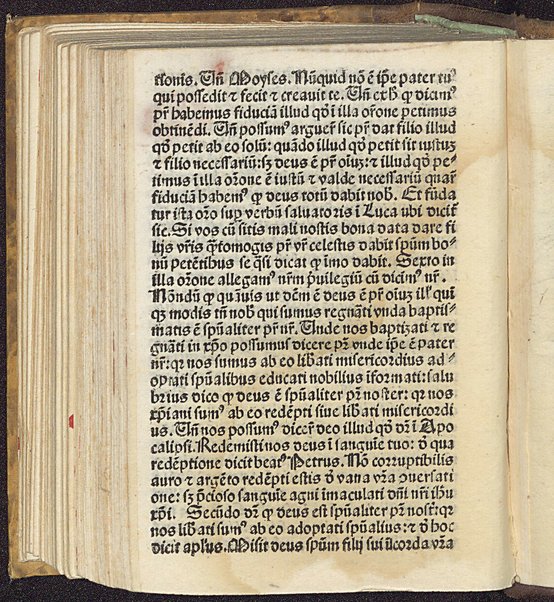 tionis. Uñ Moyses. Nũquid nõ ẽ ip̃e pater tuꝰ
qui possedit ⁊ fecit ⁊ creavit te. Uñ ex hͦ ꝙ dicimꝰ
pr̃ habemus fiduciã illud qd̃ ĩ illa or̃one petimus
obtinẽdi. Uñ possumꝰ arguer̃ sic pr̃ dat filio illud
qd̃ petit ab eo solũ: quãdo illud qd̃ petit sit iustuꝫ
⁊ filio necessariũ: sꝫ deus ẽ pr̃ oĩuꝫ: ⁊ illud qd̃ pe⸗
timus ĩ illa or̃one ẽ iustũ ⁊ valde necessariũ quar̃
fiduciã habemꝰ ꝙ deus totũ dabit nob̃. Et fũda
tur ista or̃o suꝑ verbũ saluatoris ĩ Luca ubi dicit̃
sic. Si vos cũ sitis mali nostis bona data dare fi
lijs vr̃is q̃tomogis pr̃ vr̃ celestis dabit spũm bo⸗
nũ petẽtibus se q̃si dicat ꝙ ĩmo dabit. Sexto in
illa or̃one allegamꝰ nr̃m p̃uilegiũ cũ dicimꝰ nr̃.
Nõndũ ꝙ quãuis ut dẽm ẽ deus ẽ pr̃ oĩuꝫ
qꝫ modis tñ nob̃ qui sumus regnãti vnda baptis⸗
matis ẽ spũaliter pr̃ nr̃. Unde nos baptizati ⁊ re
gnãti in xp̃o possumus dicere pr̃ vnde ip̃e ẽ pater
nr̃: qr nos sumus ab eo lib̃ati misericordius ad⸗
optati spũalibus educati nobilius ĩformati: salu
brius dico ꝙ deus ẽ spũaliter pr̃ noster: qr nos
xp̃iani sumꝰ ab eo redẽpti siue lib̃ati misericordi
us. Uñ nos possumꝰ dicer̃ deo illud qd̃ dr̃ ĩ Apo
calipsi. Redemisti nos deus ĩ sanguĩe tuo: ꝺ̃ qua
redẽptione dicit beatꝰ Petrus. Nõ corruptibilis
auro ⁊ argẽto redẽpti estis ꝺ̃ vana vr̃a ꝯuersati
one: sꝫ p̃cioso sanguĩe agni ĩmaculati dñi nr̃i ih̃u
xp̃i. Secũdo dr̃ ꝙ deus est spũaliter pr̃ nost̃: qr
nos lib̃ati sumꝰ ab eo adoptati spũalius: ⁊ ꝺ̃ hoc
dicit ap̃lus. Misit deus spũm filij sui ĩ corda vr̃a